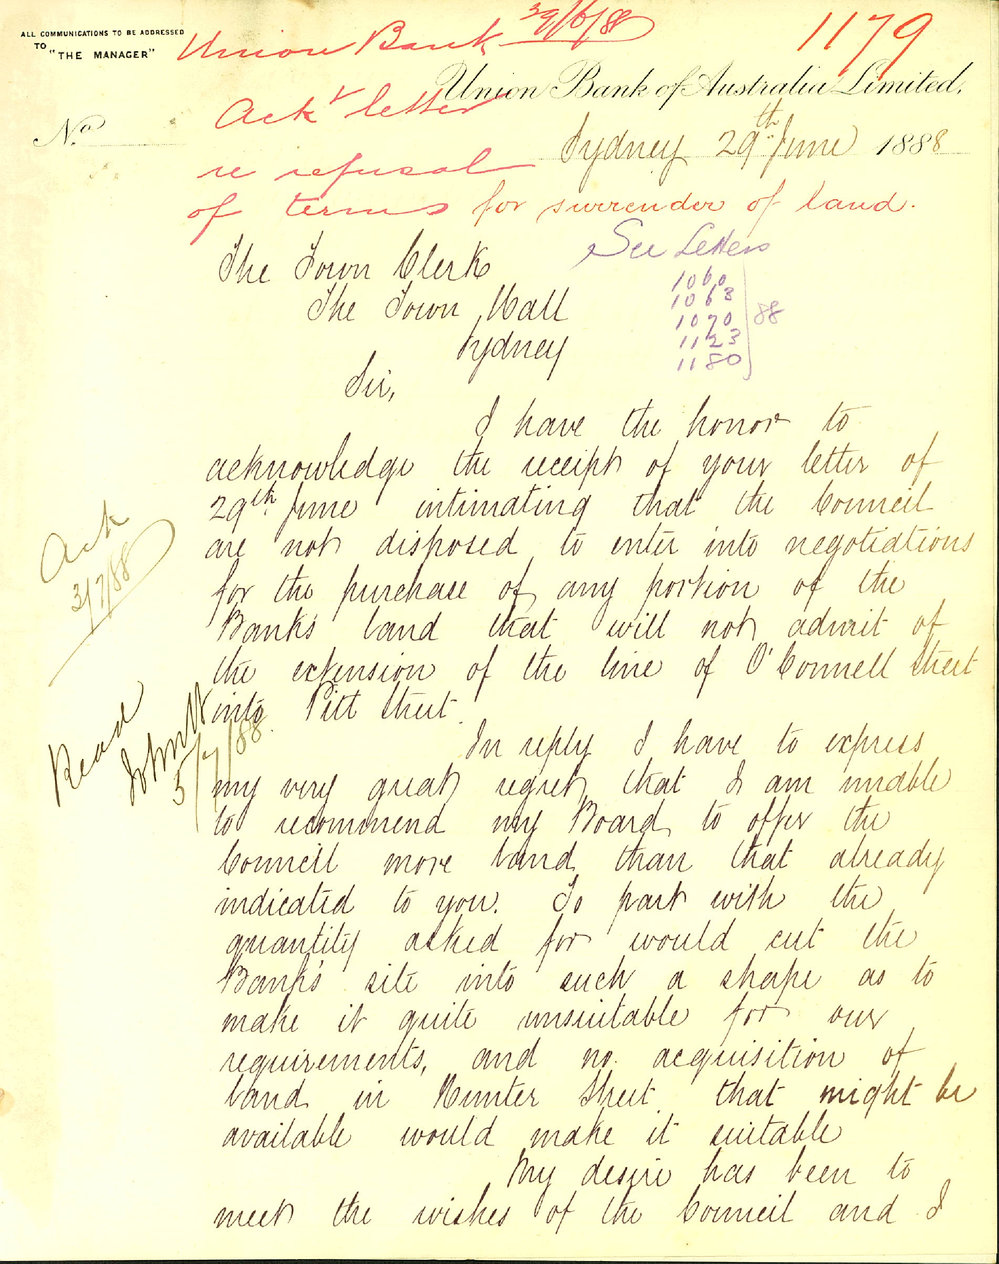 ALL COMMUNICATIONS TO BE ADDRESSED
TO "THE MANAGER"
Union Bank 29/6/88
1179
Union Bank of Australia Limited.
Ackt letter
No
Sydney 29th June 1888
re refusal
of terms for surrender of land.
See Letters
1060
1063
1070
1123
1180
88
The Town Clerk
The Town Hall
Sydney
Sir,
I have the honor to
acknowledge the receipt of your letter of
29th June intimating that the Council
are not disposed to enter into negotiations
for the purchase of any portion of the
Bank's land that will not admit of
the extension of the line of O'Connell Street
into Pitt Street.
Ack
3/7/88
Read
5/7/88
In reply I have to express
my very great regret that I am unable
to recommend my Board to offer the
Council more land than that already
indicated to you. To part with the
quantity asked for would cut the
Bank's site into such a shape as to
make it quite unsuitable for our
requirements, and no acquisition of
land in Hunter Street that might be
available would make it suitable
My desire has been to
meet the wishes of the Council and I